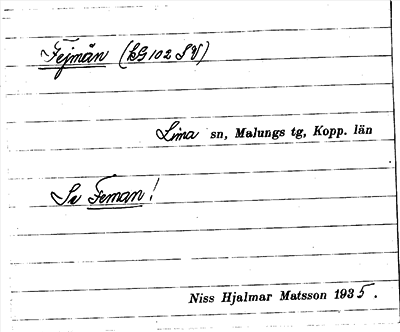 Fejmän (bG 102 SV)
Lima sn, Malungs tg, Kopp. län
Se Feman!
Niss Hjalmar Matsson 1935.